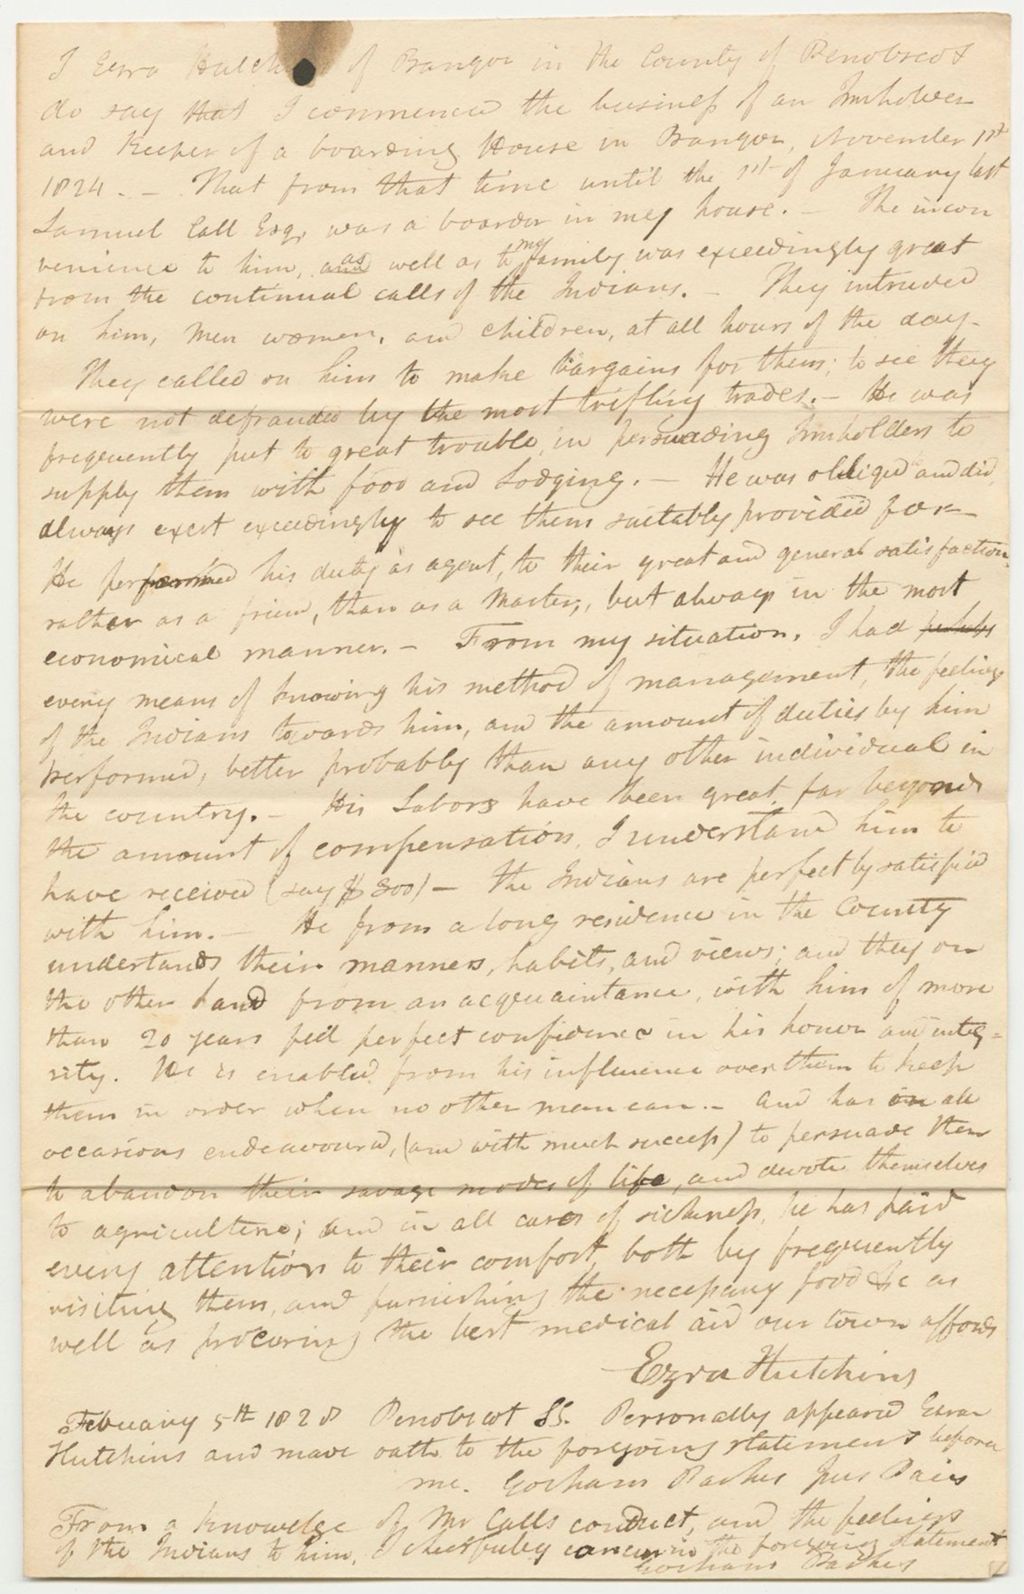 I Ezra Hutch of Bangor in the County of Penobscot
do say that I commenced the business of an Innholder
and Keeper of a boarding House in Bangor, November 1st
1824. – That from that time until the 1st of January last
Samuel Call Esqr was a boarder in my house. – The incon
venience to him, as well as to my family was exceedingly great
from the continual calls of the Indians. – They intruded
on him, men women, and children, at all hours of the day –
They called on him to make bargains for them; to see they
were not defrauded by the most trifling trades. – He was
frequently put to great trouble, in persuading Innholders to
supply them with food and Lodging. – He was obliged and did
always exert exceedingly to see them suitably provided for –
He performed his duty as agent, to their great and general satisfaction,
rather as a friend, than as a Master, but always in the most
economical manner. – From my situation, I had
every means of knowing his method of management, the feelings
of the Indians towards him, and the amount of duties by him
performed, better probably than any other individual in
the country. – His Labors have been great, far beyond
the amount of compensation, I understand him to
have received (say $300) – the Indians are perfectly satisfied
with him. – He from a long residence in the County
understands their manners, habits, and views; and they on
the other hand from an acquaintance, with him of more
than 20 years feel perfect confidence in his honor and integ=
rity. He is enabled from his influence over them to keep
them in order when no other man can. – And has on all
occasions endeavoured, (and with much success) to persuade them
to abandon their savage modes of life, and devote themselves
to agriculture; and in all cases of sickness, he has paid
every attention to their comfort, both by frequently
visiting them, and furnishing the necessary food &c as
well as procuring the best medical aid our town affords
Ezra Hutchins
February 5th 1828 Penobscot SS. Personally appeared Ezra
Hutchins and made oath to the foregoing statement before
me. Gorham Parks Jus Pacis
From a knowledge of Mr Calls conduct, and the feelings
of the Indians to him, I cheerfully concur in the foregoing statement
Gorham Parks